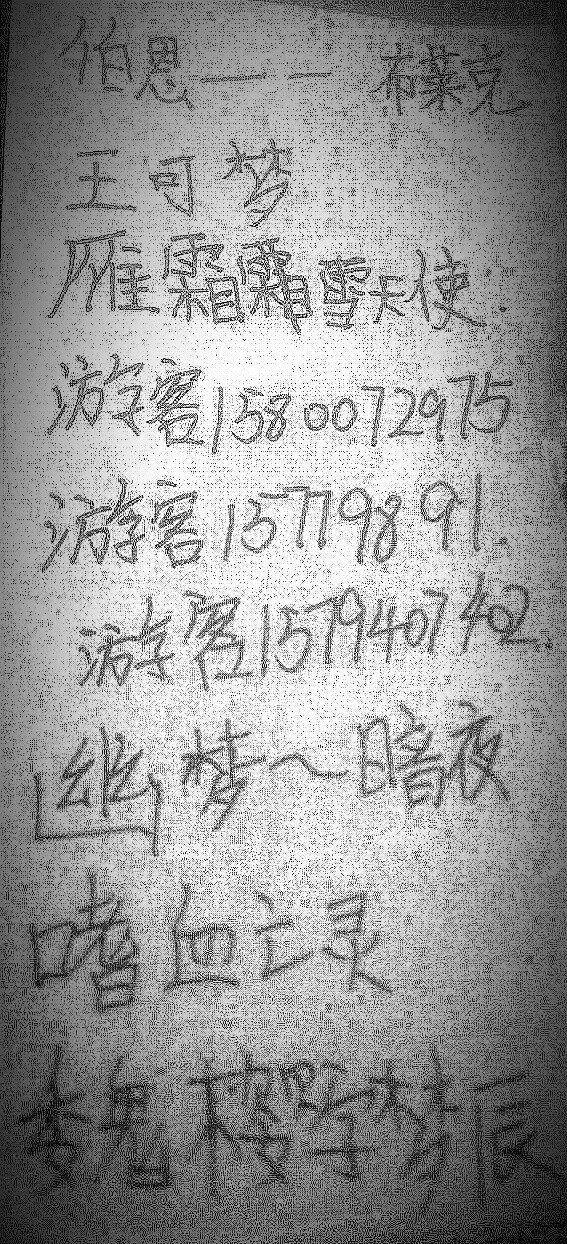 伯恩——布莱克
王可梦
雁霜霜雪天使.
游客1580072975
游客15779891
游客1579407402.
幽梦~暗夜
嗜血亡灵
梦辰